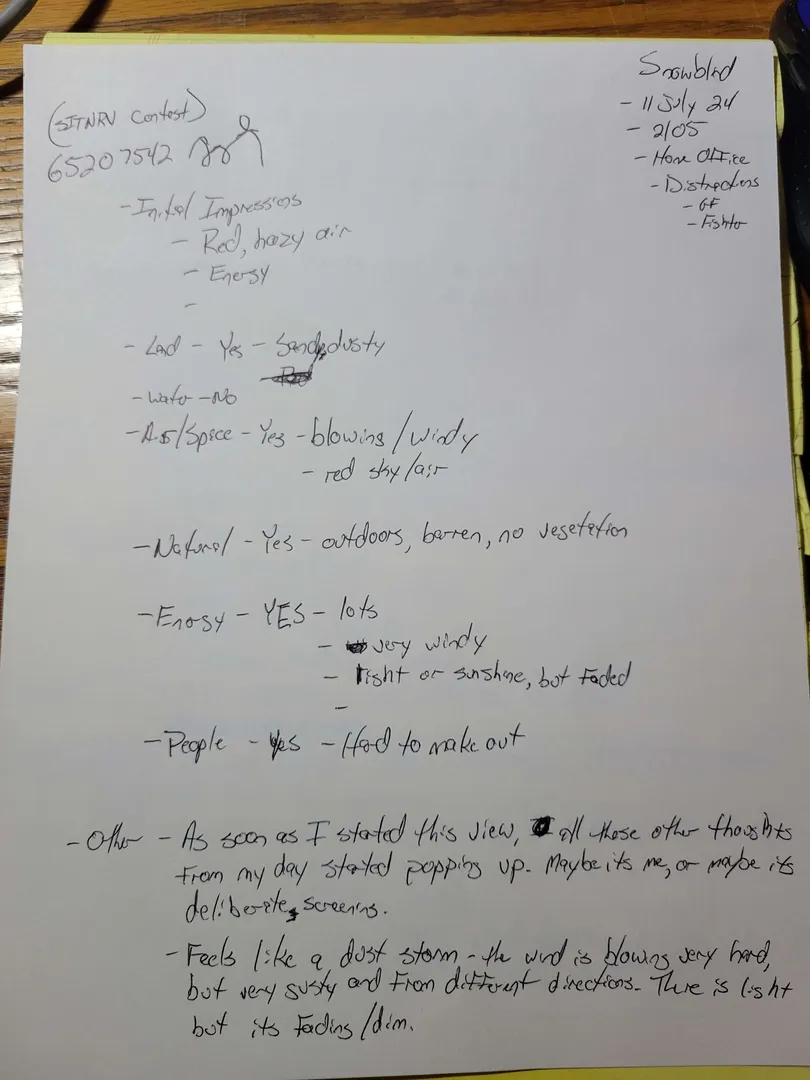 Snowblind
- 11 July 24
- 2105
- Home Office
- Distractions
- GF
(SITNRV Contest)
65207542
- Initial Impressions
- Red, hazy air
- Energy
-
- Land - Yes - Sandy, dusty
- Water - No
- Air/Space - Yes - blowing/windy
- red sky/air
- Natural - Yes - outdoors, barren, no vegetation
- Energy - YES - lots
- very windy
- light or sunshine, but faded
-
- People - Yes - Hard to make out
- Other - As soon as I started this view, all these other thoughts
from my day started popping up. Maybe its me, or maybe its
deliberate, screening.
- Feels like a dust storm - the wind is blowing very hard,
but very gusty and from different directions. There is light
but its fading/dim.